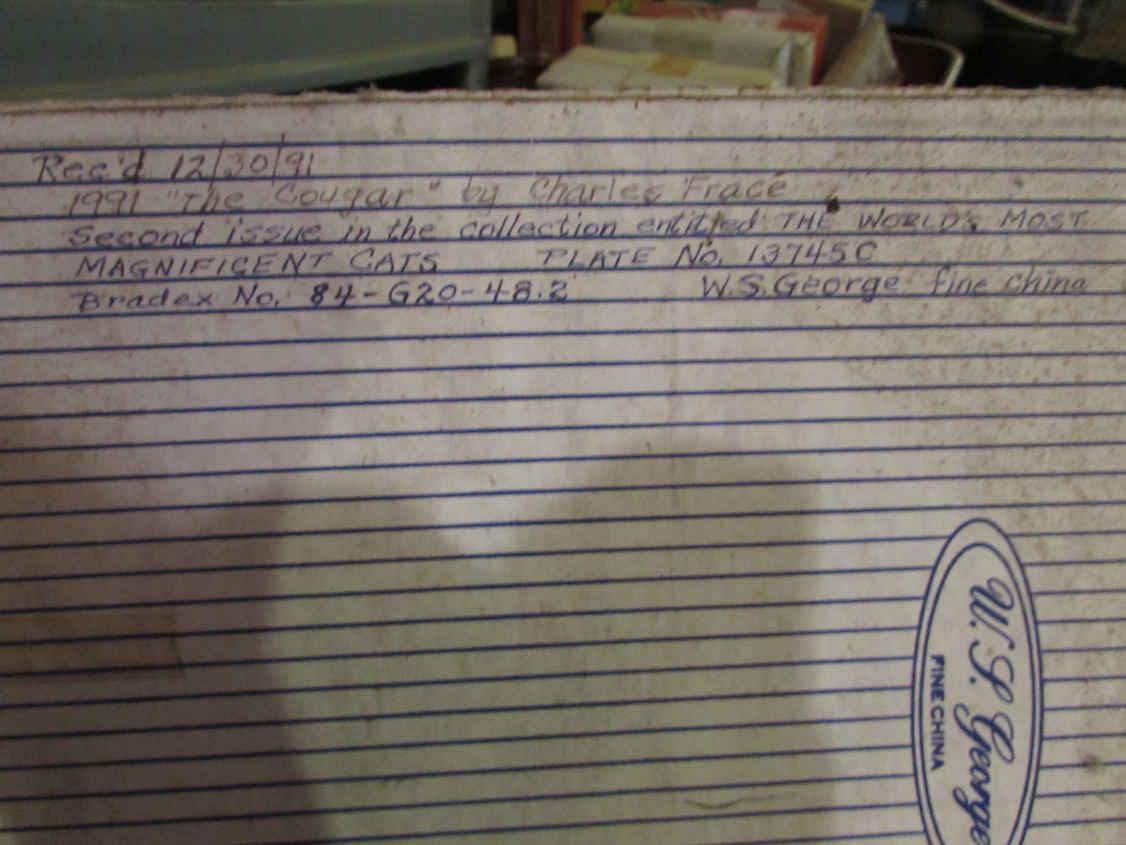 Rec'd 12/30/91
1991 "The Cougar" by Charles Fracé
Second issue in the collection entitled THE WORLD'S MOST
MAGNIFICENT CATS PLATE No. 13745C
Bradex No. 84-G20-48.2 W.S.George fine china
W.S. George
FINE CHINA